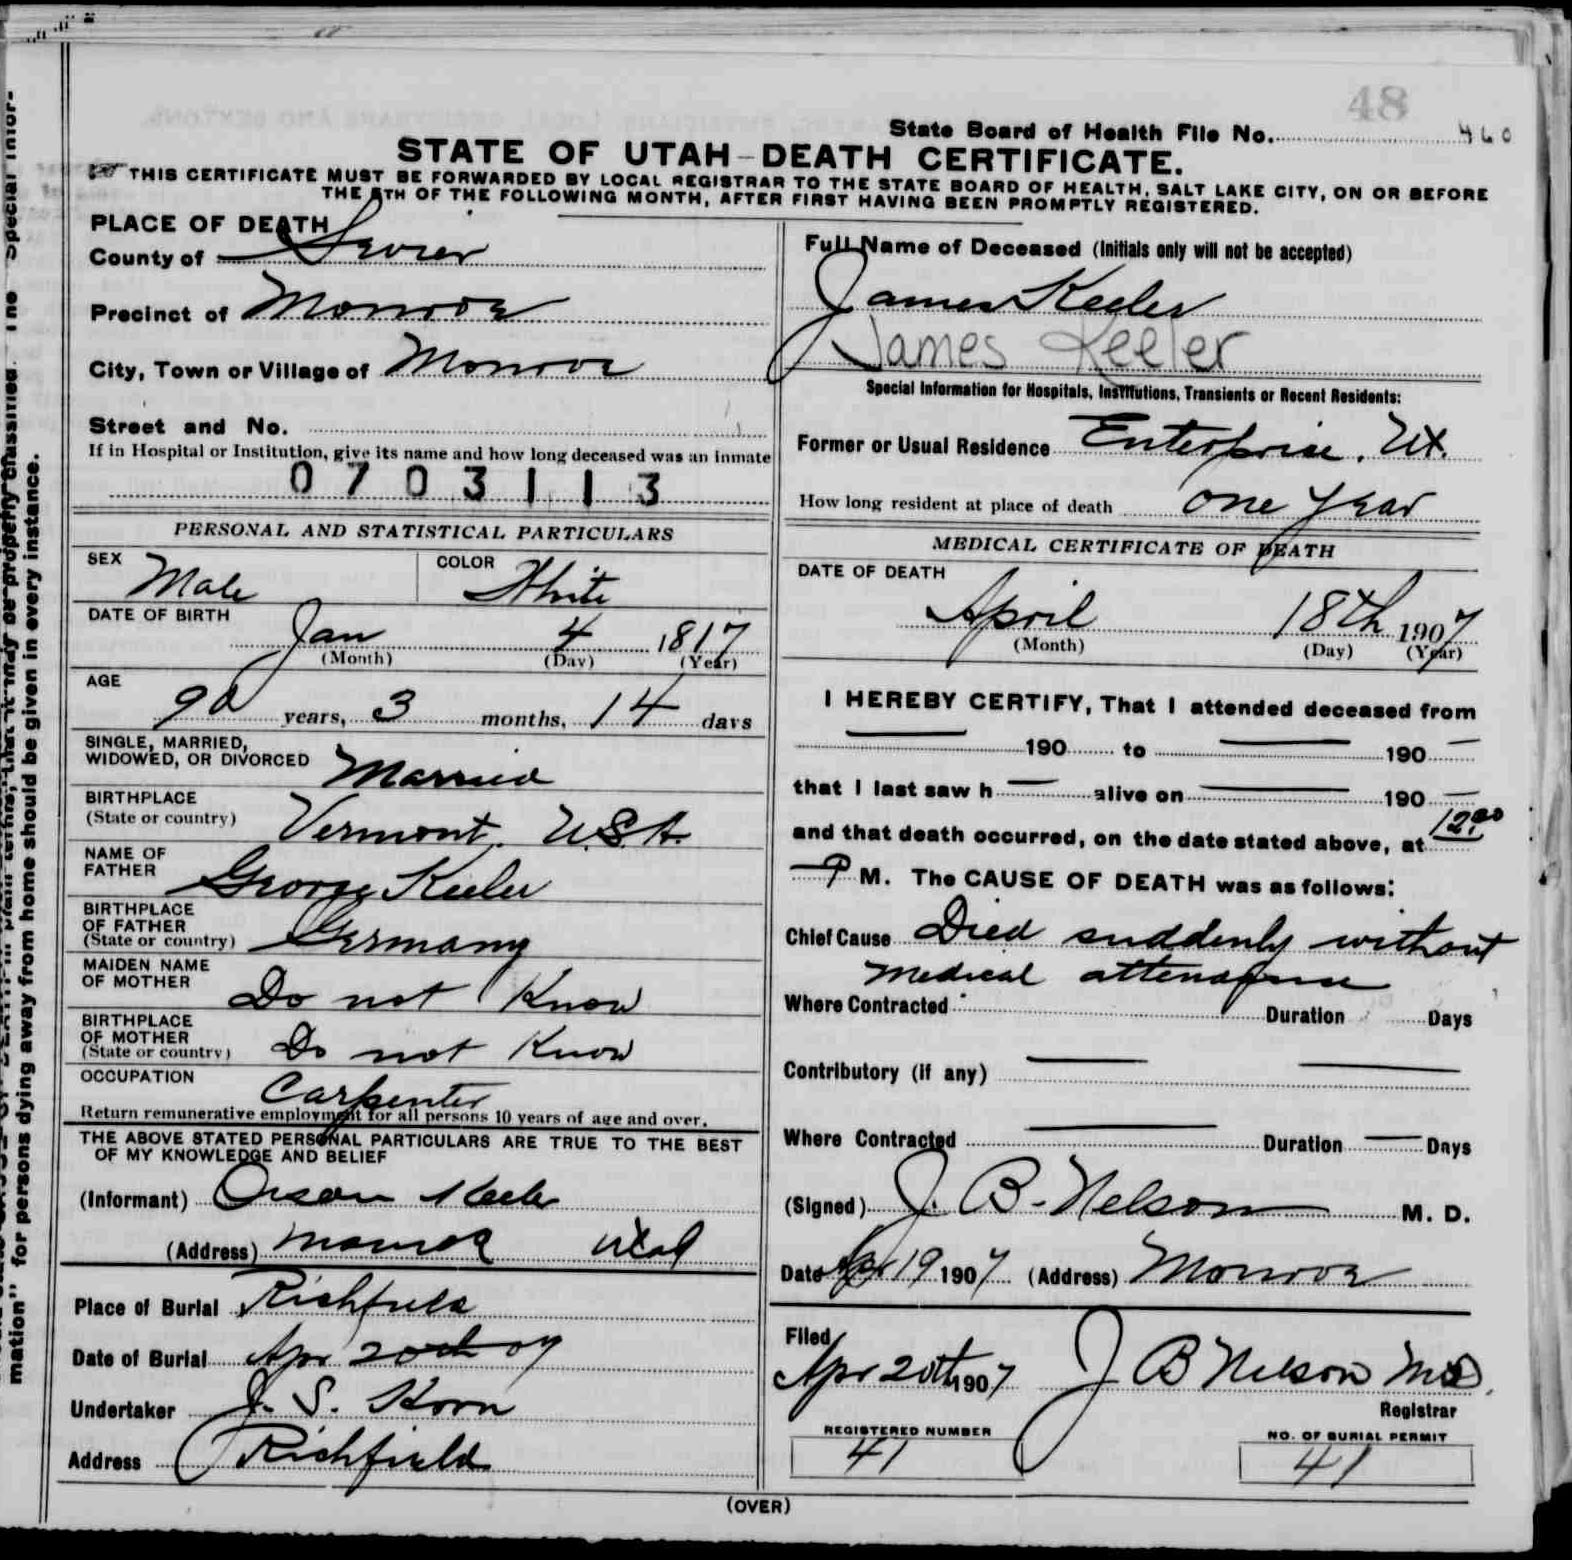 48
State Board of Health File No. 460
STATE OF UTAH-DEATH CERTIFICATE.
THIS CERTIFICATE MUST BE FORWARDED BY LOCAL REGISTRAR TO THE STATE BOARD OF HEALTH, SALT LAKE CITY, ON OR BEFORE
THE 5TH OF THE FOLLOWING MONTH, AFTER FIRST HAVING BEEN PROMPTLY REGISTERED.
PLACE OF DEATH
County of Sevier
Precinct of Monroe
City, Town or Village of Monroe
Street and No.
If in Hospital or Institution, give its name and how long deceased was an inmate
0703113
PERSONAL AND STATISTICAL PARTICULARS
SEX Male COLOR White
DATE OF BIRTH
Jan 4 1817
(Month) (Day) (Year)
AGE
90 years, 3 months, 14 days
SINGLE, MARRIED,
WIDOWED, OR DIVORCED Married
BIRTHPLACE
(State or country) Vermont. U.S.A.
NAME OF
FATHER George Keeler
BIRTHPLACE
OF FATHER
(State or country) Germany
MAIDEN NAME
OF MOTHER Do not Know
BIRTHPLACE
OF MOTHER
(State or country) Do not Know
OCCUPATION Carpenter
Return remunerative employment for all persons 10 years of age and over.
THE ABOVE STATED PERSONAL PARTICULARS ARE TRUE TO THE BEST
OF MY KNOWLEDGE AND BELIEF
(Informant) Orson Keeler
(Address) Monroe Utah
Place of Burial Richfield
Date of Burial Apr 20th 07
Undertaker J. S. Horn
Address Richfield
Full Name of Deceased (Initials only will not be accepted)
James Keeler
James Keeler
Special Information for Hospitals, Institutions, Transients or Recent Residents:
Former or Usual Residence Enterprise. Ut.
How long resident at place of death one year
MEDICAL CERTIFICATE OF DEATH
DATE OF DEATH
April 18th 1907
(Month) (Day) (Year)
I HEREBY CERTIFY, That I attended deceased from
— 190 to — 190 —
that I last saw h — alive on — 190 —
and that death occurred, on the date stated above, at 12.00
P M. The CAUSE OF DEATH was as follows:
Chief Cause Died suddenly without
medical attendance
Where Contracted Duration Days
Contributory (if any) — —
Where Contracted — Duration — Days
(Signed) J. B. Nelson M. D.
Date Apr 19 1907 (Address) Monroe
Filed
Apr 20th 1907 J B Nelson MD.
Registrar
REGISTERED NUMBER
41
NO. OF BURIAL PERMIT
41
(OVER)
mation" for persons dying away from home should be given in every instance.